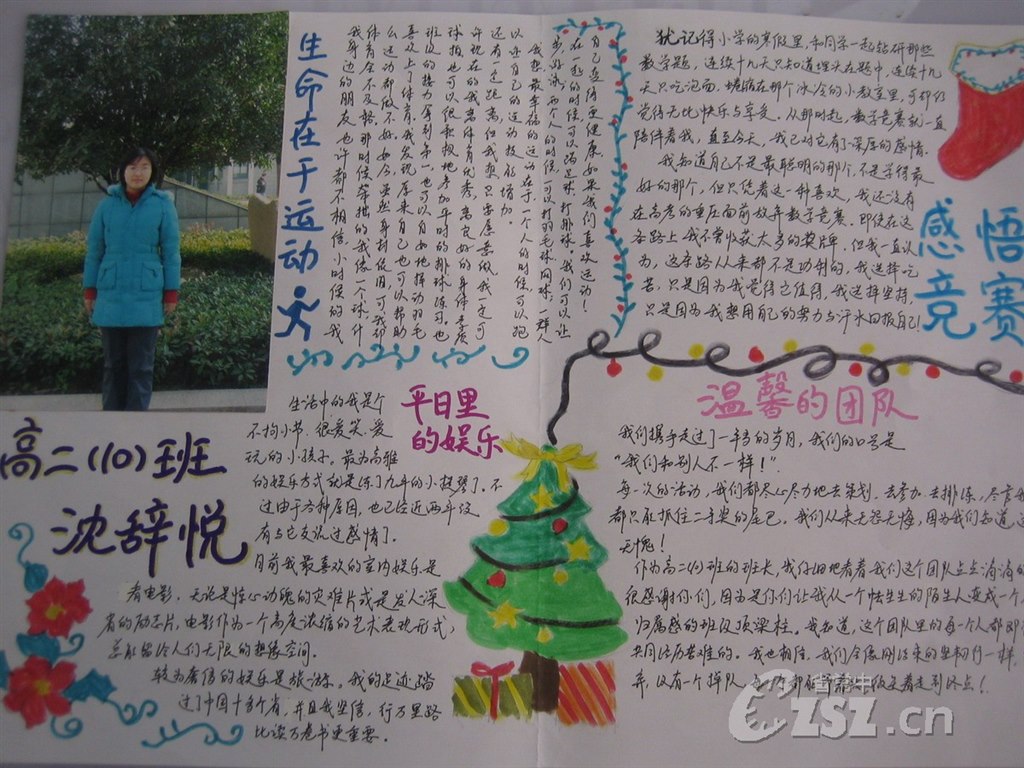 生命在于运动
我身边的朋友也许都不相信，小时候的我
体育全不及格，那时候笨拙的我像一个球，什
么运动都做不好。
喜欢上了体育，我发现原来自己也可以
班级的接力赛到
球拍，也可以很积极地参加平时的排球练习。也
许现在的我
还有一定距离，但我想只要愿意做，我一定可
以让自己的运动技能增加。
我想最幸福的运动在于一个人的时候可以跑
步、游泳，两个人的时候可以打羽毛球、网球，一群人
在一起的时候可以踢足球、打排球，我们可以让
自己变得更健康，如果我们喜欢运动！
犹记得小学的寒假里，和同学一起钻研那些
数学题，连续十几天只知道埋头在题中，连续十几
天只吃泡面，蜷缩在那个冰冷的小教室里，可却仍
觉得无比快乐与享受。从那时起，数学竞赛就一直
陪伴着我，直至今天，我已对它有了深厚的感情。
我知道自己不是最聪明的那个，不是学得最
好的那个，但只凭着这一种喜欢，我还没有
在高考的重压面前放弃数学竞赛。即使在这
条路上我不曾收获太多的奖牌，但我一直认
为，这条路从来都不是功利的，我选择吃
苦，只是因为我觉得它值得，我选择坚持，
只是因为我想用自己的努力与汗水回报自己！
感悟
竞赛
平日里
的娱乐
生活中的我是个
不拘小节、很爱笑、爱
玩的小孩子。最为高雅
的娱乐方式就是练了九年的小提琴了。不
过由于各种原因，也已经近两年没
有与它交流过感情了。
目前我最喜欢的室内娱乐是
看电影，无论是惊心动魄的灾难片或是发人深
省的励志片，电影作为一个高度浓缩的艺术表现形式，
总能留给人们无限的想象空间。
较为奢侈的娱乐是旅游，我的足迹踏
过了中国十多个省，并且我坚信，行万里路
比读万卷书更重要。
高二(10)班
沈辞悦
温馨的团队
我们携手走过了一年多的岁月，我们的口号是
“我们和别人不一样！”
每一次的活动，我们都尽心尽力地去策划、去参加、去排练，尽管我
都只能抓住二等奖的尾巴。我们从来无怨无悔，因为我们知道
无愧！
作为高二(10)班的班长，我仔细地看着我们这个团队点点滴滴的
很感谢你们，因为是你们让我从一个怯生生的陌生人变成一个
归属感的班级顶梁柱。我知道，这个团队里的每一个人都
共同经历着难的。我也相信，我们会像刚过来的
弃，没有一个掉队，笑着走到终点！
ZSZ.cn